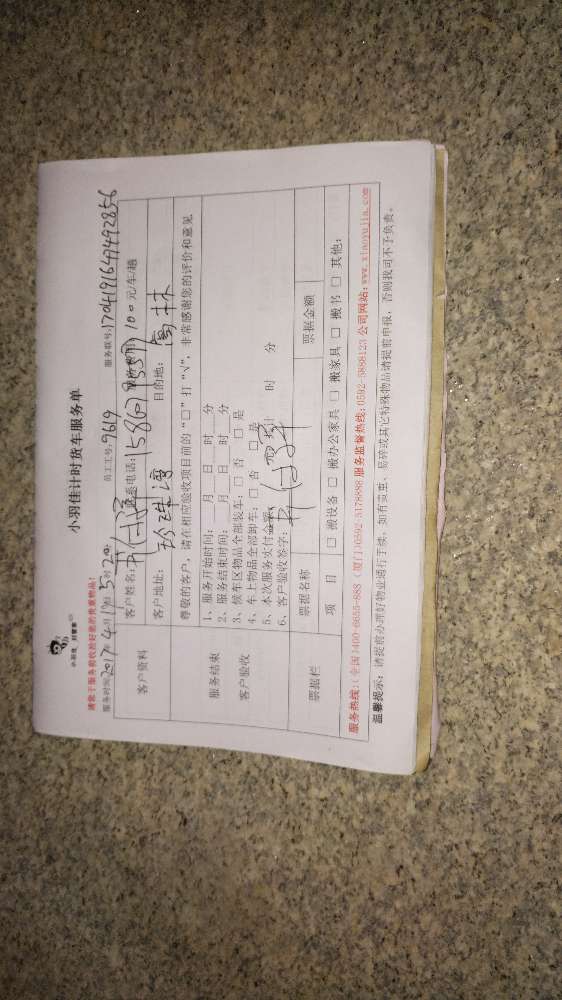 小羽佳 好管家
小羽佳计时货车服务单
请您于服务前收拾好您的贵重物品!
服务时间: 2017年4月19日5时20 员工工号: 9619 服务联号: 1704191649492856
客户资料
客户姓名: 联系电话: 100元/车/趟
客户地址: 珍珠湾 目的地: 高林
尊敬的客户, 请在相应验收项目前的“□”打“√”, 非常感谢您的评价和意见
服务结束
客户验收
1、服务开始时间: 月 日 时 分
2、服务结束时间: 月 日 时 分
3、候车区物品全部装车: □ 否 □ 是
4、车上物品全部卸车: □ 否 □ 是
5、本次服务实付金额: 时 分
6、客户验收签字:
票据栏
票据名称 票据金额
项 目 □ 搬设备 □ 搬办公家具 □ 搬家具 □ 搬书 □ 其他:
服务热线: (全国)400-6655-888 (厦门)0592-5178888 服务监督热线: 0592-5888123 公司网站: www.xiaoyujia.com
温馨提示: 请提前办理好物业通行手续, 如有贵重、易碎或其它特殊物品请提前申报, 否则我司不予负责。